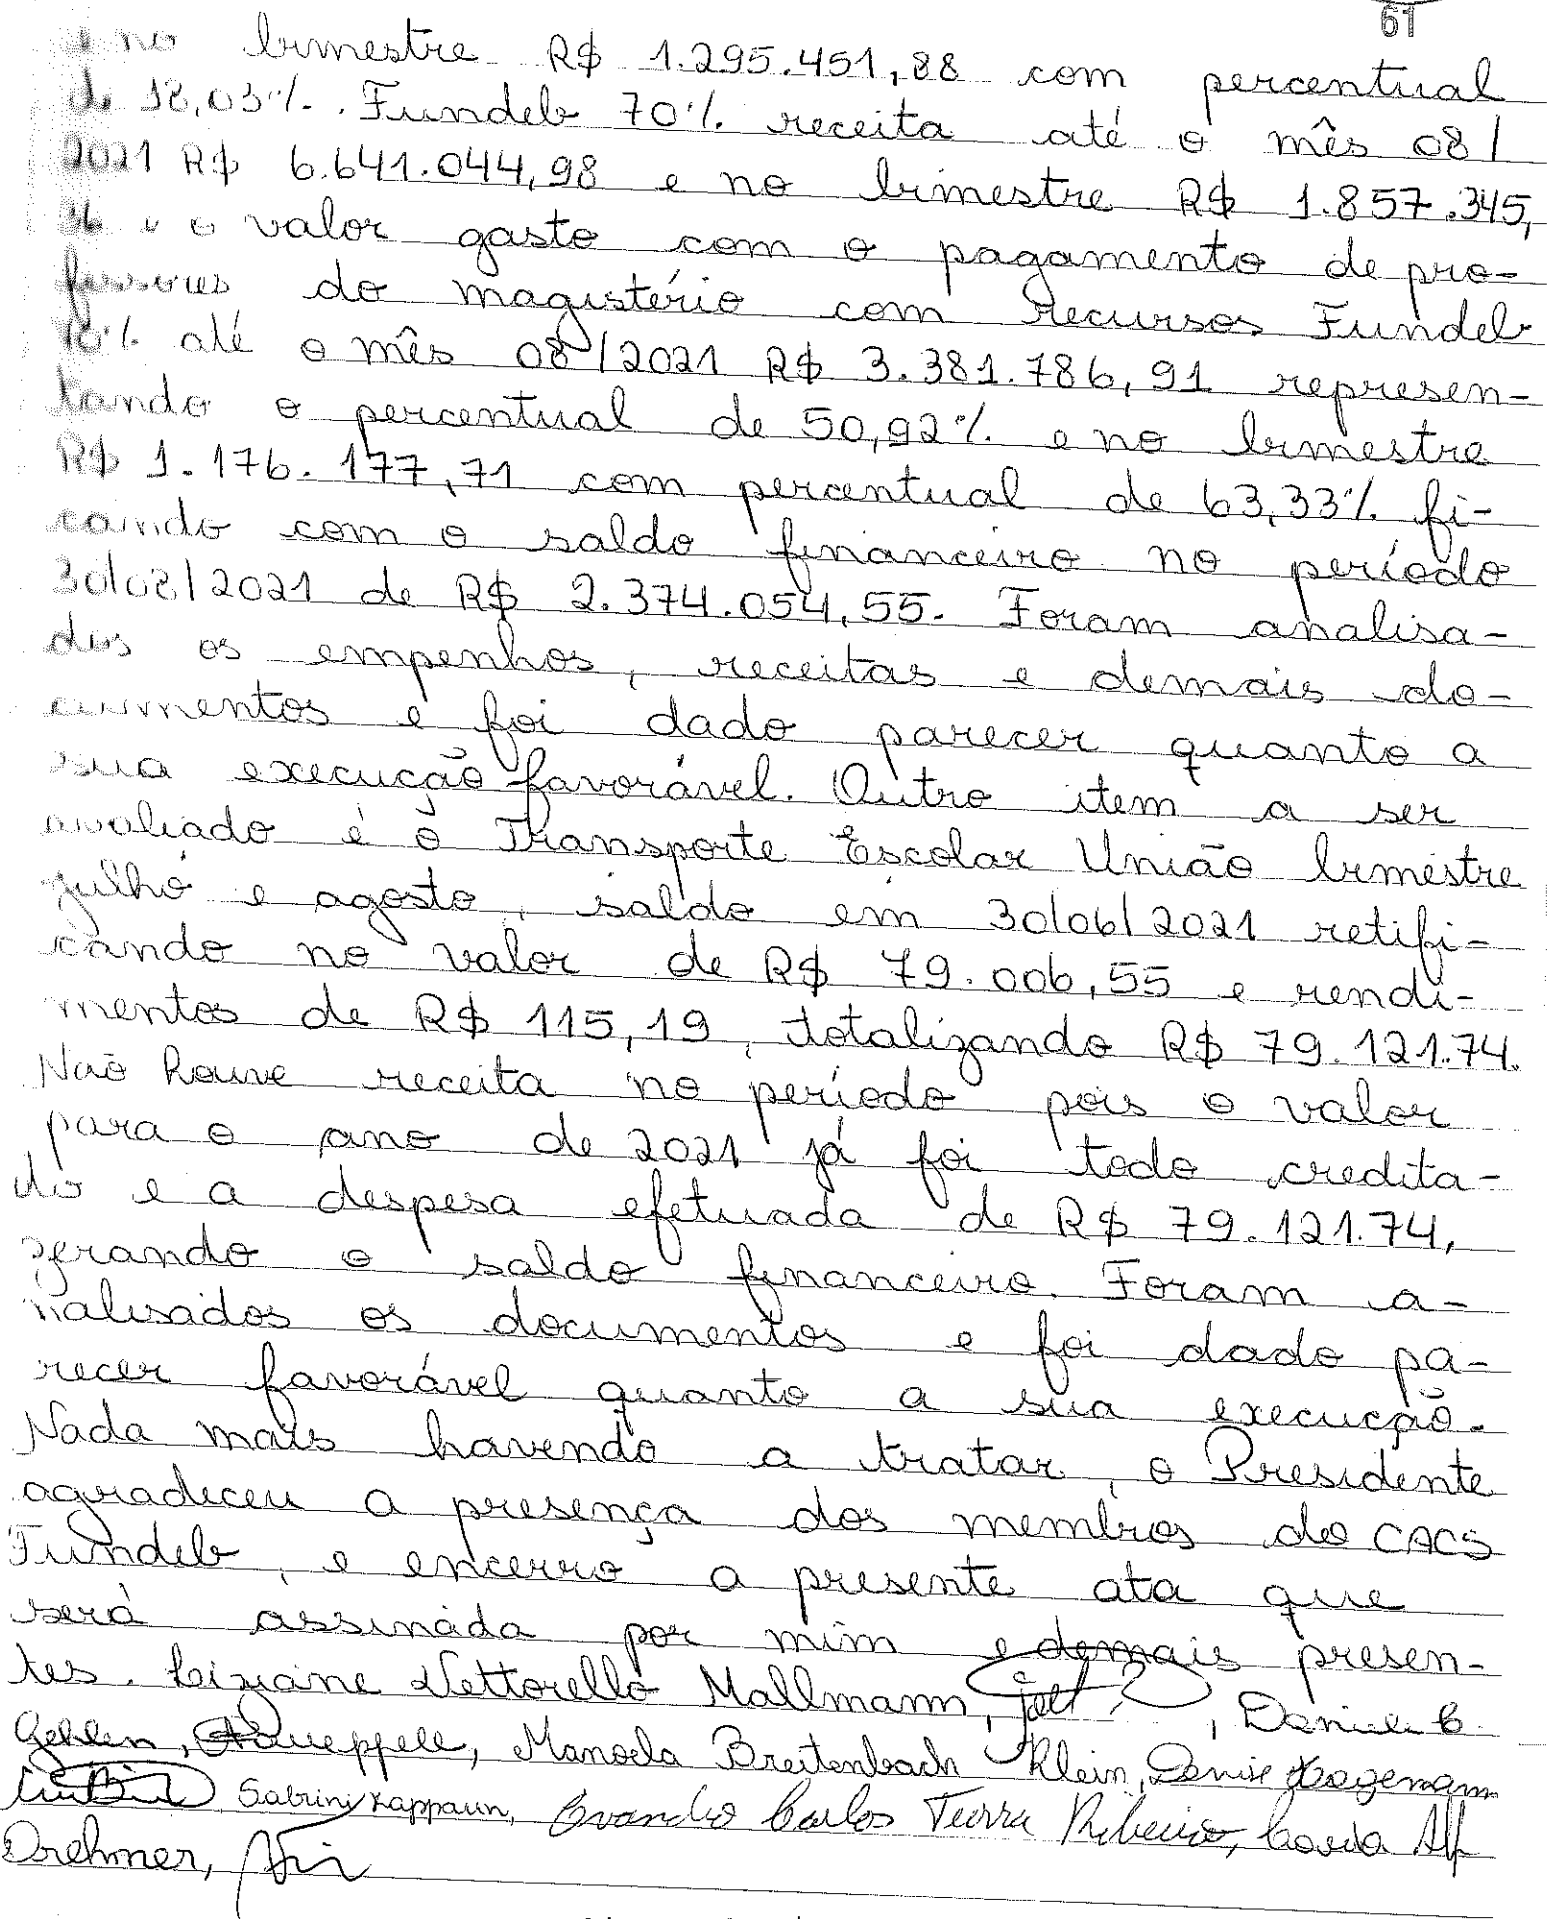 61
e no bimestre R$ 1.295.451,88 com percentual
de 18,03%. Fundeb 70% receita até o mês 08/
2021 R$ 6.641.044,98 e no bimestre R$ 1.857.345,
36 e o valor gasto com o pagamento de pro-
fessores do magistério com recursos Fundeb
70% até o mês 08/2021 R$ 3.381.786,91 represen-
tando o percentual de 50,92% e no bimestre
R$ 1.176.177,71 com percentual de 63,33% fi-
cando com o saldo financeiro no período
30/08/2021 de R$ 2.374.054,55. Foram analisa-
dos os empenhos, receitas e demais do-
cumentos e foi dado parecer quanto a
sua execução favorável. Outro item a ser
avaliado é o Transporte Escolar União bimestre
julho e agosto, saldo em 30/06/2021 retifi-
cando no valor de R$ 79.006,55 e rendi-
mentos de R$ 115,19, totalizando R$ 79.121.74.
Não houve receita no período pois o valor
para o ano de 2021 já foi todo credita-
do e a despesa efetuada de R$ 79.121.74,
zerando o saldo financeiro. Foram a-
nalisados os documentos e foi dado pa-
recer favorável quanto a sua execução.
Nada mais havendo a tratar, o Presidente
agradeceu a presença dos membros do CACS
Fundeb, e encerro a presente ata que
será assinada por mim e demais presen-
tes. Liziane Vettorello Mallmann, , Daniele C.
Gehlen, , Manoela Breitenbach Klein, Denise Hagemann
Sabrini Kappaun, Evandro Carlos Terra Ribeiro,
Drehmer,